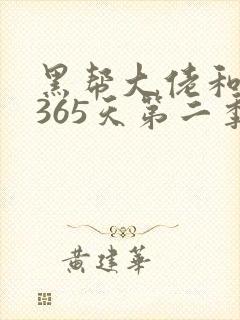 黑帮大佬和
365天第二季
黄建华